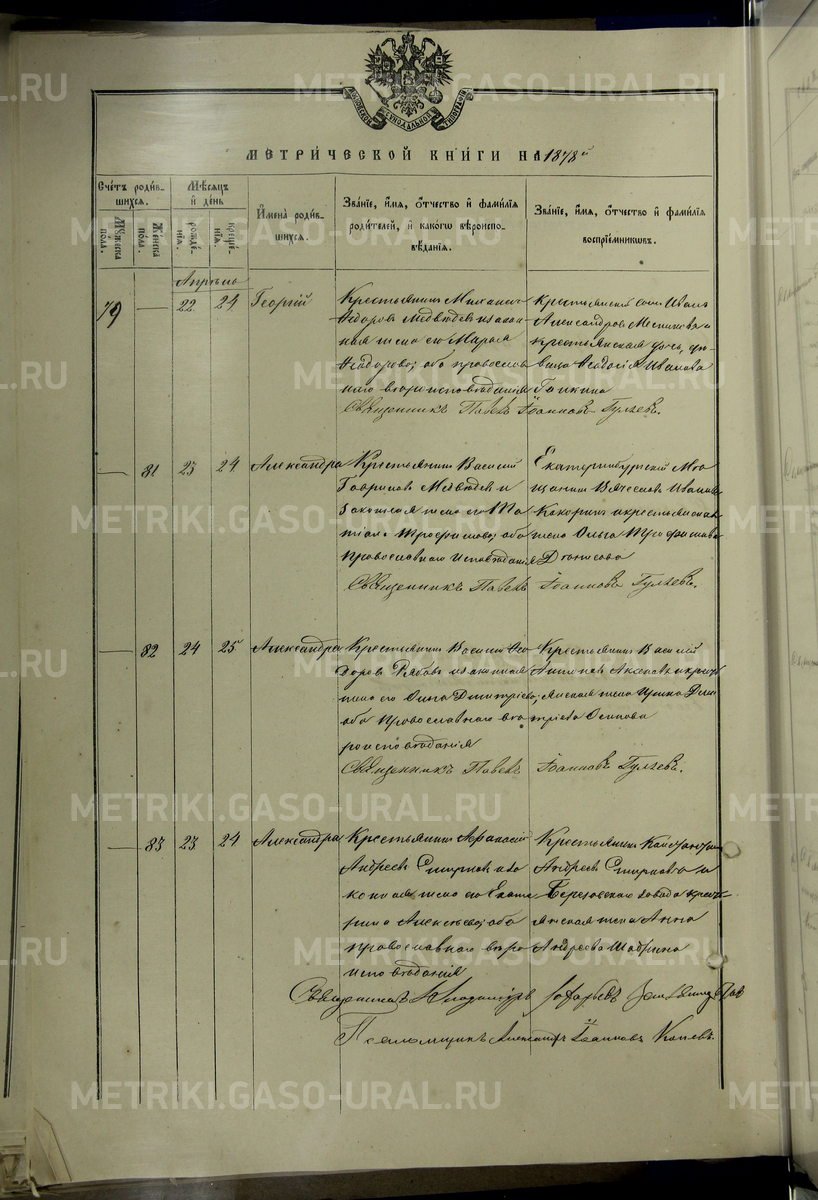 МОСКОВСКОЙ СѴНОДАЛЬНОЙ ТИПОГРАФІИ
МЕТРИ́ЧЕСКОЙ КНИ́ГИ НА 1878й
Счéтъ роди́в-
шихся.
Мꙋ́жеска пола.
Жéнска пола.
Мѣ́сяцъ
и҆ день
рождé-
нїѧ.
крещé-
нїѧ.
И҆мена̀ роди́в-
шихся.
Звáнїе, и҆́мѧ, ѻ҆́тчество и҆ фами́лїѧ
роди́телей, и҆ какóгѡ вѣроиспо-
вѣ́данїѧ.
Звáнїе, и҆́мѧ, ѻ҆́тчество и҆ фами́лїѧ
воспрїéмникѡвъ.
Апрѣль
79 — 22 24 Георгій
Крестьянинъ Михаилъ
Ѳедоровъ Медвѣдевъ и закон
ная жена его Марья
Ѳедорова; оба православ
наго вѣроисповѣданія
крестьянскій сынъ Иванъ
Александровъ и
крестьянская дочь, дѣ-
вица Ѳеодосія Иванова
Священникъ Павелъ Іоанновъ Гуляевъ.
— 81 23 24 Александра
Крестьянинъ Василій
Гавриловъ Медвѣдевъ и
законная жена его Та
тіана Трофимова; оба
Православнаго Исповѣданія
Екатеринбургскій Мѣ
щанинъ Вячеславъ Ивановъ
Кокоринъ и крестьянская
жена Ольга Трофимова
Денисова
Священникъ Павелъ Іоанновъ Гуляевъ.
— 82 24 25 Александра
Крестьянинъ Василій Ѳео
доровъ Рябовъ и законная
жена его Анна Дмитріева;
оба Православнаго вѣ
роисповѣданія
Крестьянинъ Василій
Аксеновъ и кресть
янская жена Ирина Дми
тріева Осипова
Священникъ Павелъ Іоанновъ Гуляевъ.
— 83 23 24 Александра
Крестьянинъ Аѳанасій
Андреевъ Смирновъ и за
конная жена его Екате
рина Алексѣева; оба
православнаго вѣро
исповѣданія
Крестьянинъ Константинъ
Андреевъ Смирновъ и
Березовскаго завода кресть
янская жена Анна
Андреева Шабрина
Священникъ Владиміръ Захарьевъ
Псаломщикъ Александръ Іоанновъ
METRIKI.GASO-URAL.RU